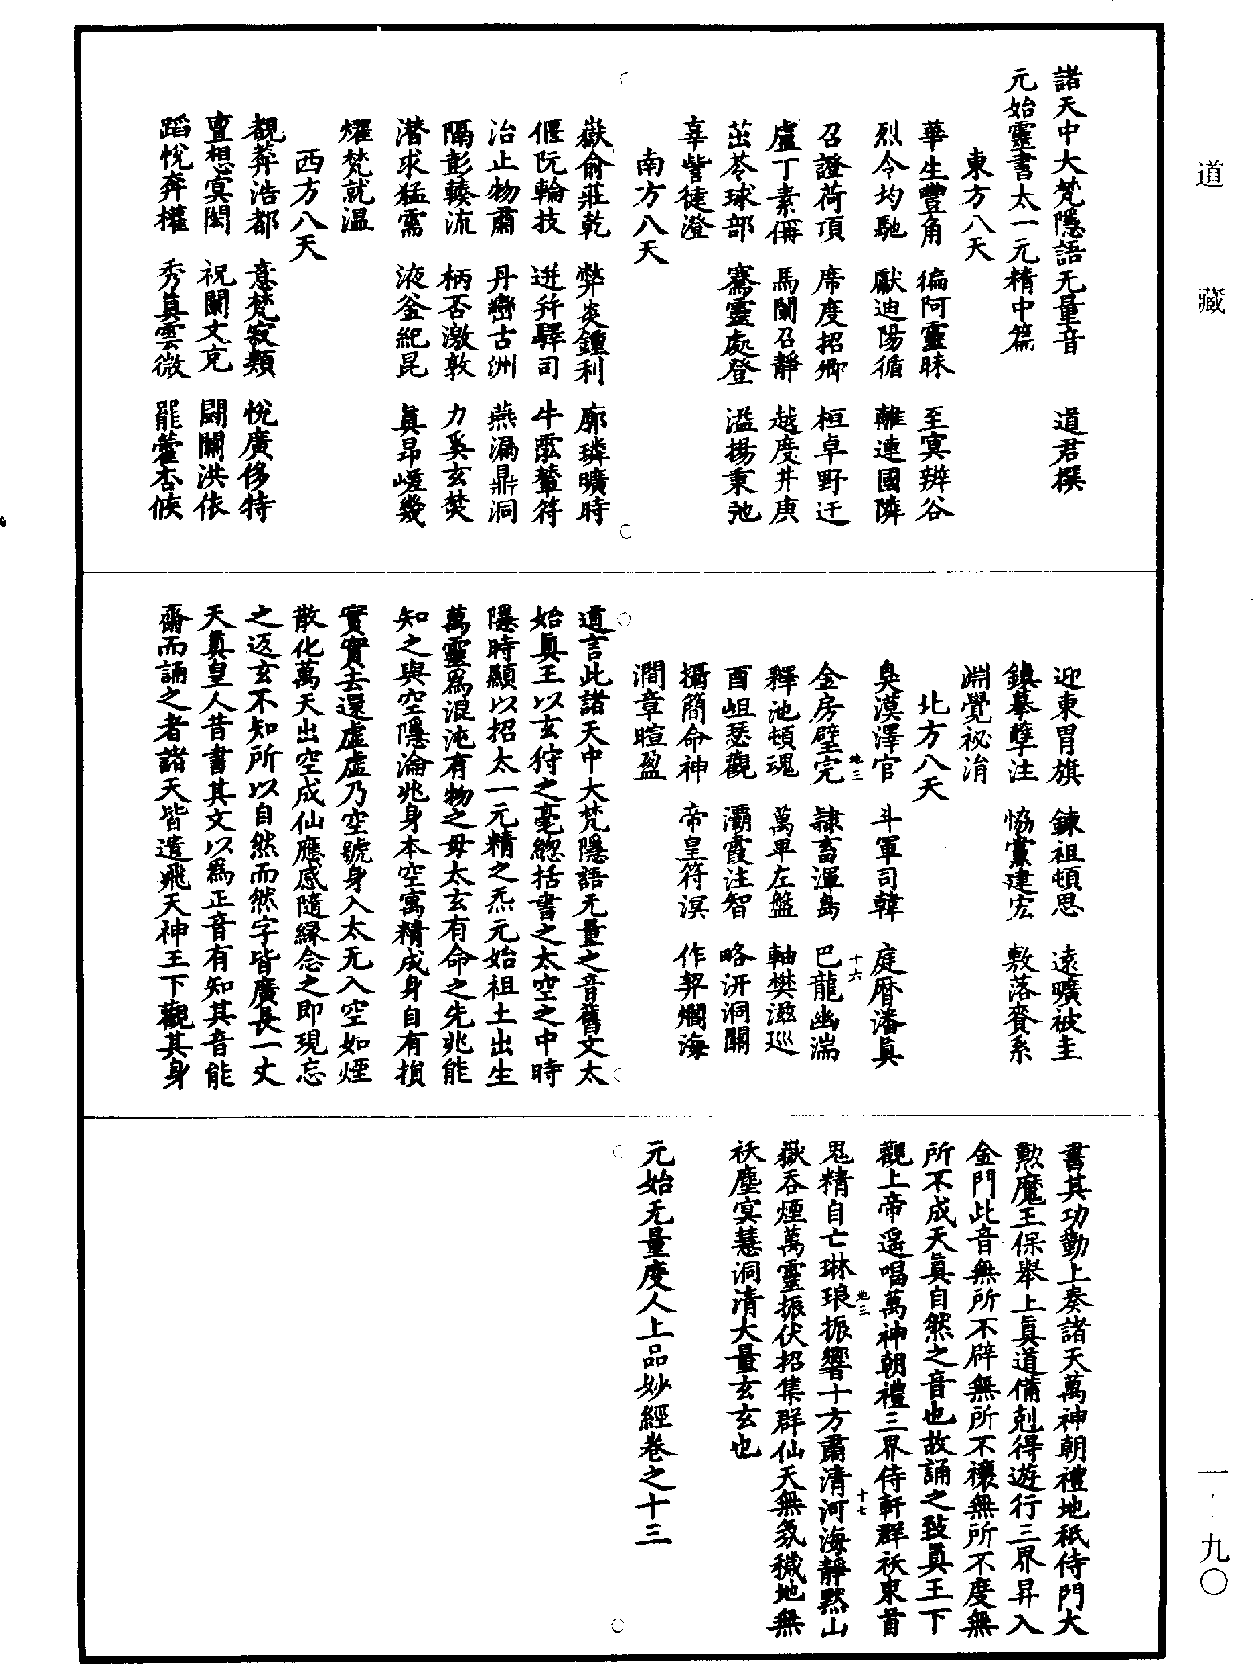 道藏
一·九〇
諸天中大梵隱語无量音 道君撰
元始靈書太一元精中篇
東方八天
華生豐角 徧阿靈昧 至寞辬谷
烈令均馳 獻迪陽循 離連國隣
召證荷項 席度招卿 桓卓野迂
盧丁素備 馬闌召靜 越度井庚
茁苓球部 騫靈處登 溢揚秉弛
辜訾徤澄
南方八天
嶽俞莊乾 弊炎鍾利 廓璘曠時
偃阮輪技 迸斧驛司 牛霐輦符
冶止物肅 丹巒古洲 燕漏鼎洞
隔彭轃流 柄否激敦 力奚玄焚
潜求猛需 液釜紀昆 眞昂嵯幾
燿梵就温
西方八天
覩莽浩都 意梵寂類 悅廣侈特
亶想寞閎 祝闌文克 闢關洪依
蹈悅奔權 秀眞雲微 罷藿杏候
迎東胃旗 錬祖頓思 遠曠被圭
鎮摹孽注 恊黨建宏 敷落賚系
淵覺祕涓
北方八天
臭漠澤官 斗軍司韓 庭曆潘眞
金房壁完 隷畜渾島 巴龍幽湍
釋池頓魂 萬畢左盤 軸樊滋巡
酉岨瑟觀 灞霞注智 略汧洞關
攝簡命神 帝皇符溟 作契爛海
澗章暄盈
道言此諸天中大梵隱語无量之音舊文太
始眞王以玄狩之毫總括書之太空之中時
隱時顯以招太一元精之炁元始祖土出生
萬靈爲混沌有物之毋太玄有命之先兆能
知之與空隱淪兆身本空寓精成身自有損
實實去還虛虛乃空號身入太无入空如煙
散化萬天出空成仙應感隨緣念之即現忘
之返玄不知所以自然而然字皆廣長一丈
天眞皇人昔書其文以爲正音有知其音能
齋而誦之者諸天皆遣飛天神王下觀其身
書其功勳上奏諸天萬神朝禮地祇侍門大
勲魔王保舉上眞道備剋得遊行三界昇入
金門此音無所不辟無所不禳無所不度無
所不成天眞自然之音也故誦之致眞王下
觀上帝遥唱萬神朝禮三界侍軒群祆束首
鬼精自亡琳琅振響十方肅清河海靜黙山
嶽吞煙萬靈振伏招集群仙天無氛穢地無
祆塵寞慧洞清大量玄玄也
元始无量度人上品妙經卷之十三
地三
十六
地三
十七